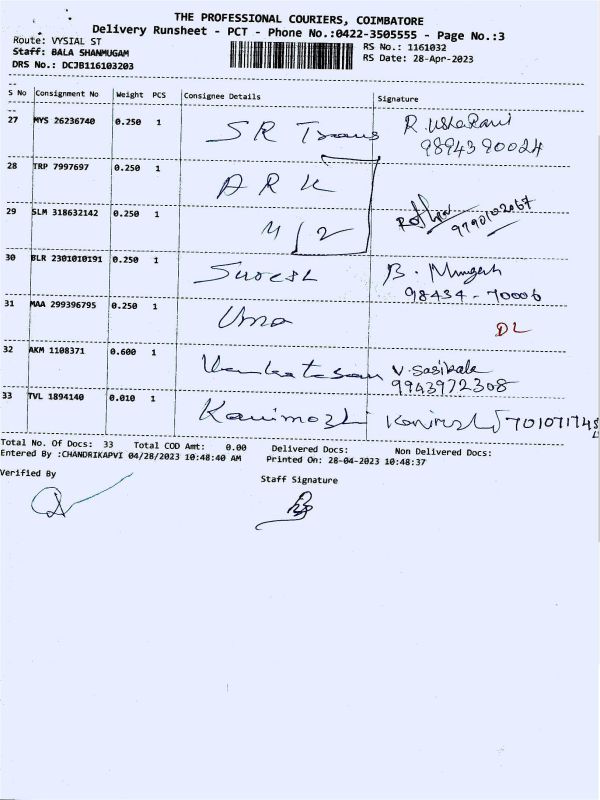 THE PROFESSIONAL COURIERS, COIMBATORE
Delivery Runsheet - PCT - Phone No.:0422-3505555 - Page No.:3
Route: VYSIAL ST
RS No.: 1161032
Staff: BALA SHANMUGAM
RS Date: 28-Apr-2023
DRS No.: DCJB116103203
S No Consignment No Weight PCS Consignee Details Signature
27 MYS 26236740 0.250 1 SR Trans R. Usha Rani
9894390024
28 TRP 7997697 0.250 1 ARK
29 SLM 318632142 0.250 1 M/2 9790102067
30 BLR 2301010191 0.250 1 Suresh B. Mugesh
98434-70006
31 MAA 299396795 0.250 1 Uma DL
32 AKM 1108371 0.600 1 Venkatesan V. Sasikala
9943972308
33 TVL 1894140 0.010 1 Kanimozhi Kanimozhi
Total No. Of Docs: 33 Total COD Amt: 0.00 Delivered Docs: Non Delivered Docs:
Entered By :CHANDRIKAPVI 04/28/2023 10:48:40 AM Printed On: 28-04-2023 10:48:37
Verified By
Staff Signature